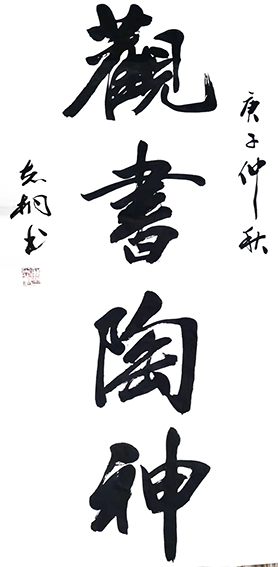 庚子仲秋
觀書陶神
志桐书